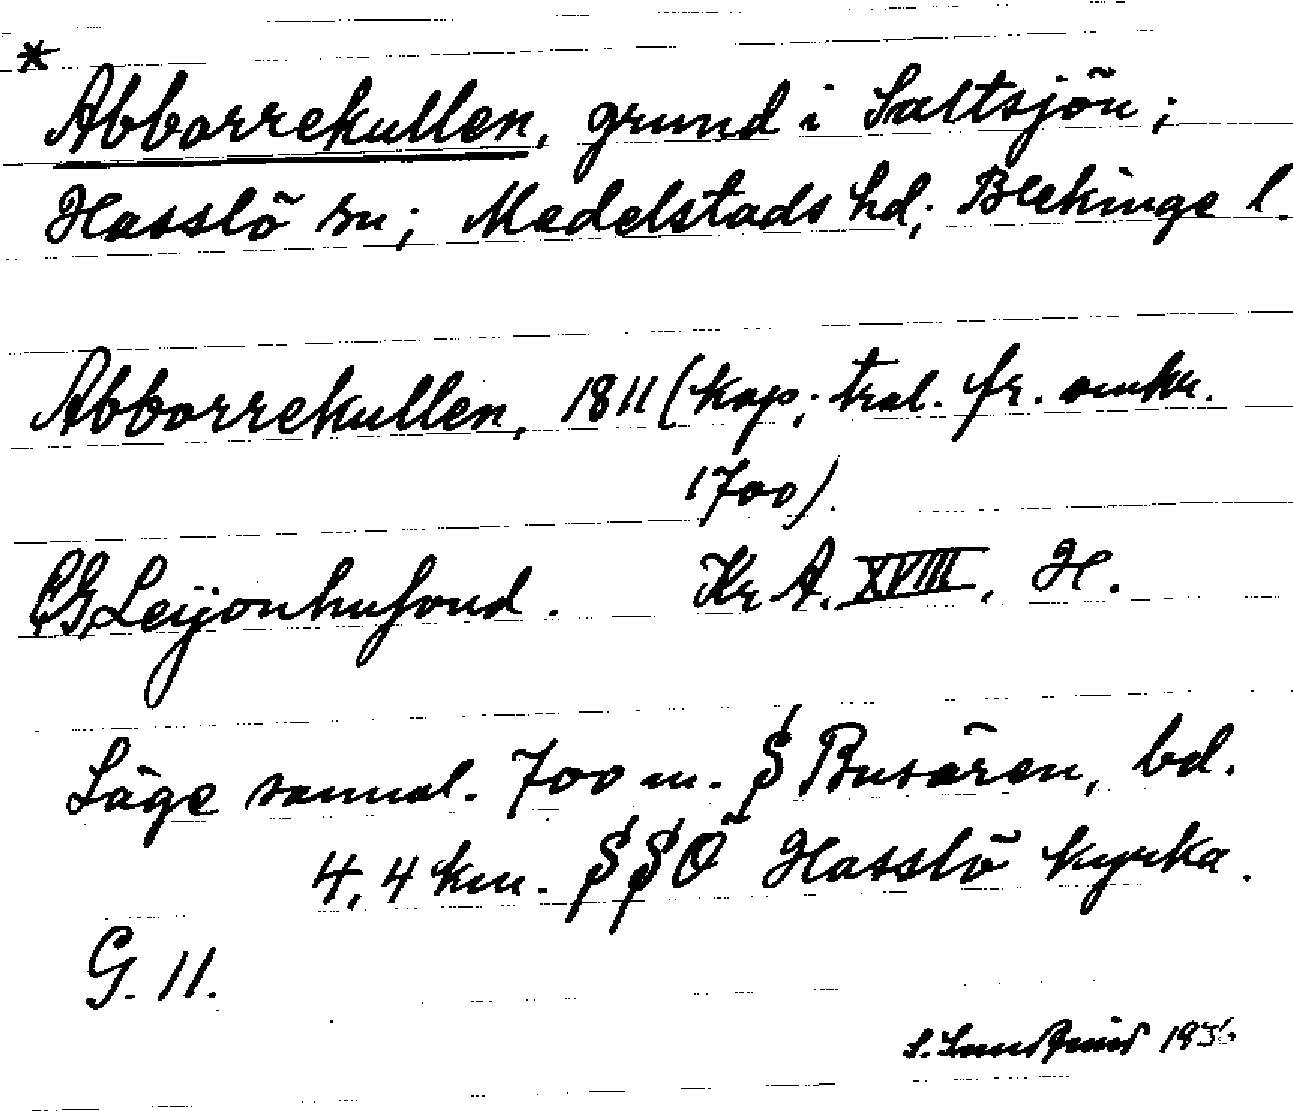 *
Abborrekullen, grund i Saltsjön;
Hasslö sn; Medelstads hd; Blekinge l.
Abborrekullen, 1811 (kop; tral. fr. omkr.
1700).
CG Leijonhufvud. Kr A. XVIII, H.
Läge sannol. 700 m. S Busören, bd.
4,4 km. SSÖ Hasslö kyrka.
G. 11.
S.